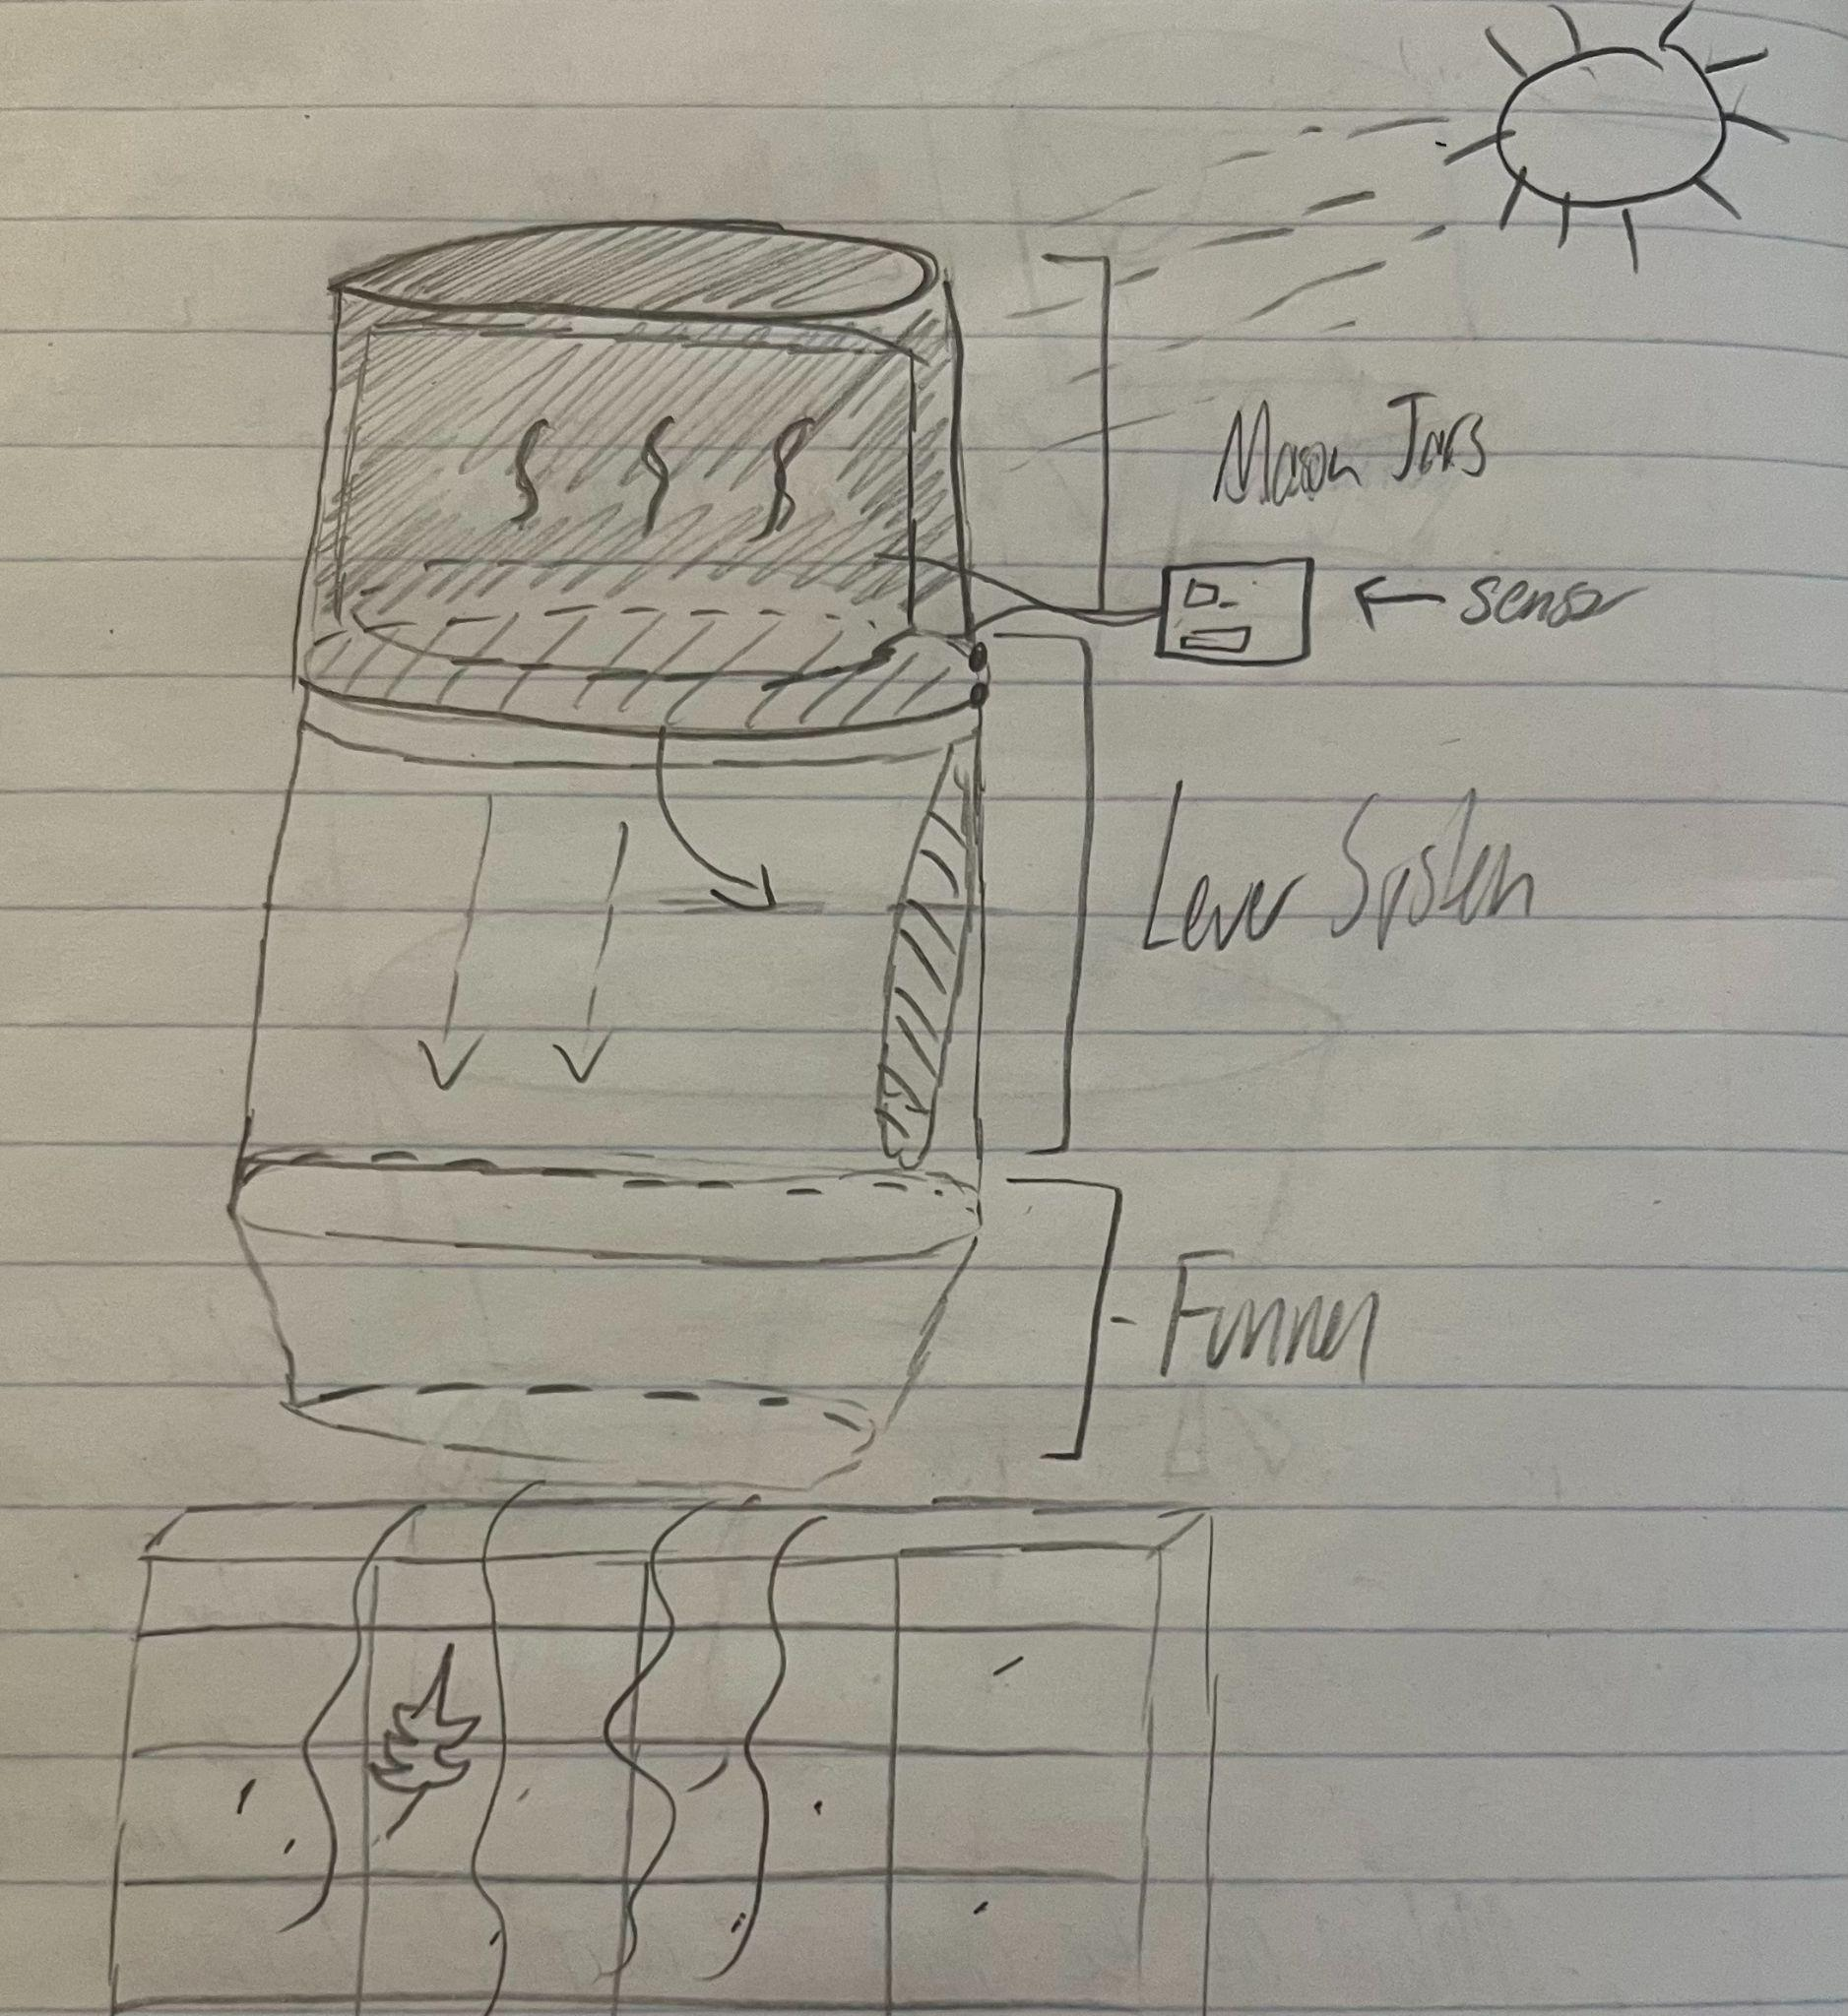 Mason Jars
← sensor
Lever System
Funnel